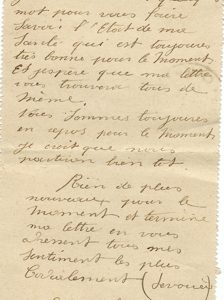 mot pour vous faire
Savoir l'Etat de ma
Santé qui est toujours
très bonne pour le moment
Et j'espère que ma lettre
vous trouvera tous de
Même.
Nous Sommes toujours
en repos pour le Moment
je crois que nous
partiron bien tot
Rien de plus
nouveaux pour le
Moment et termine
ma lettre en vous
adresent tous mes
Sentiment les plus
Cordialement